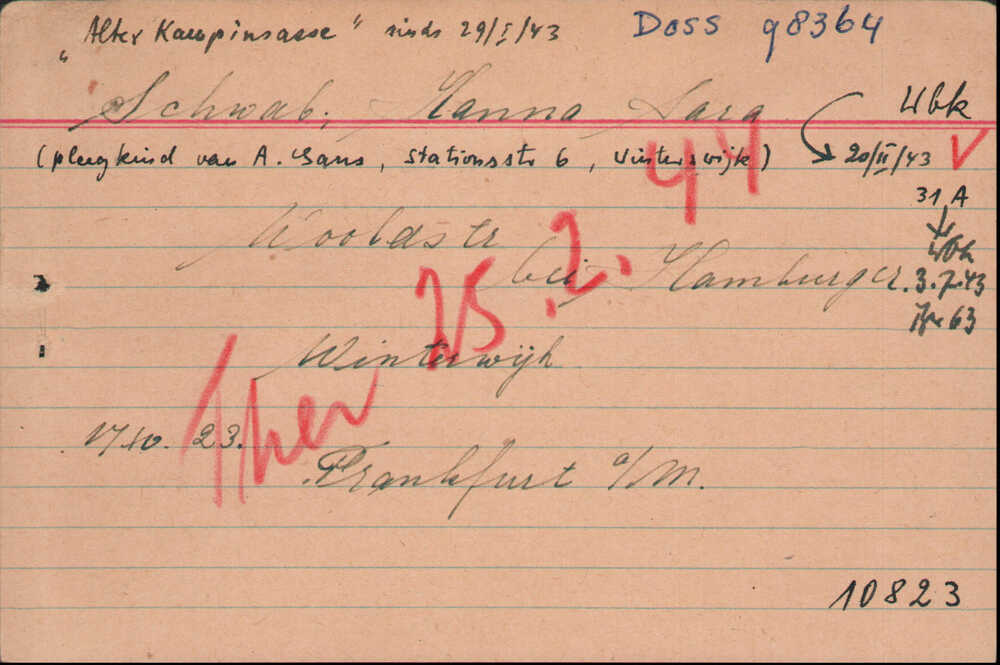 "Alter Kampinsasse" sinds 29/I/43 Doss 98364
Schwab, Hanna Sara Wbk
(pleegkind van A. Gans, Stationsstr 6, Winterswijk) 20/II/43 V
44
31 A
Wooldstr Wbk
bei Hamburger. 3.7.43
25.2.
63
Winterwijk
Ther
17.10. 23.
Frankfurt a/M.
10823